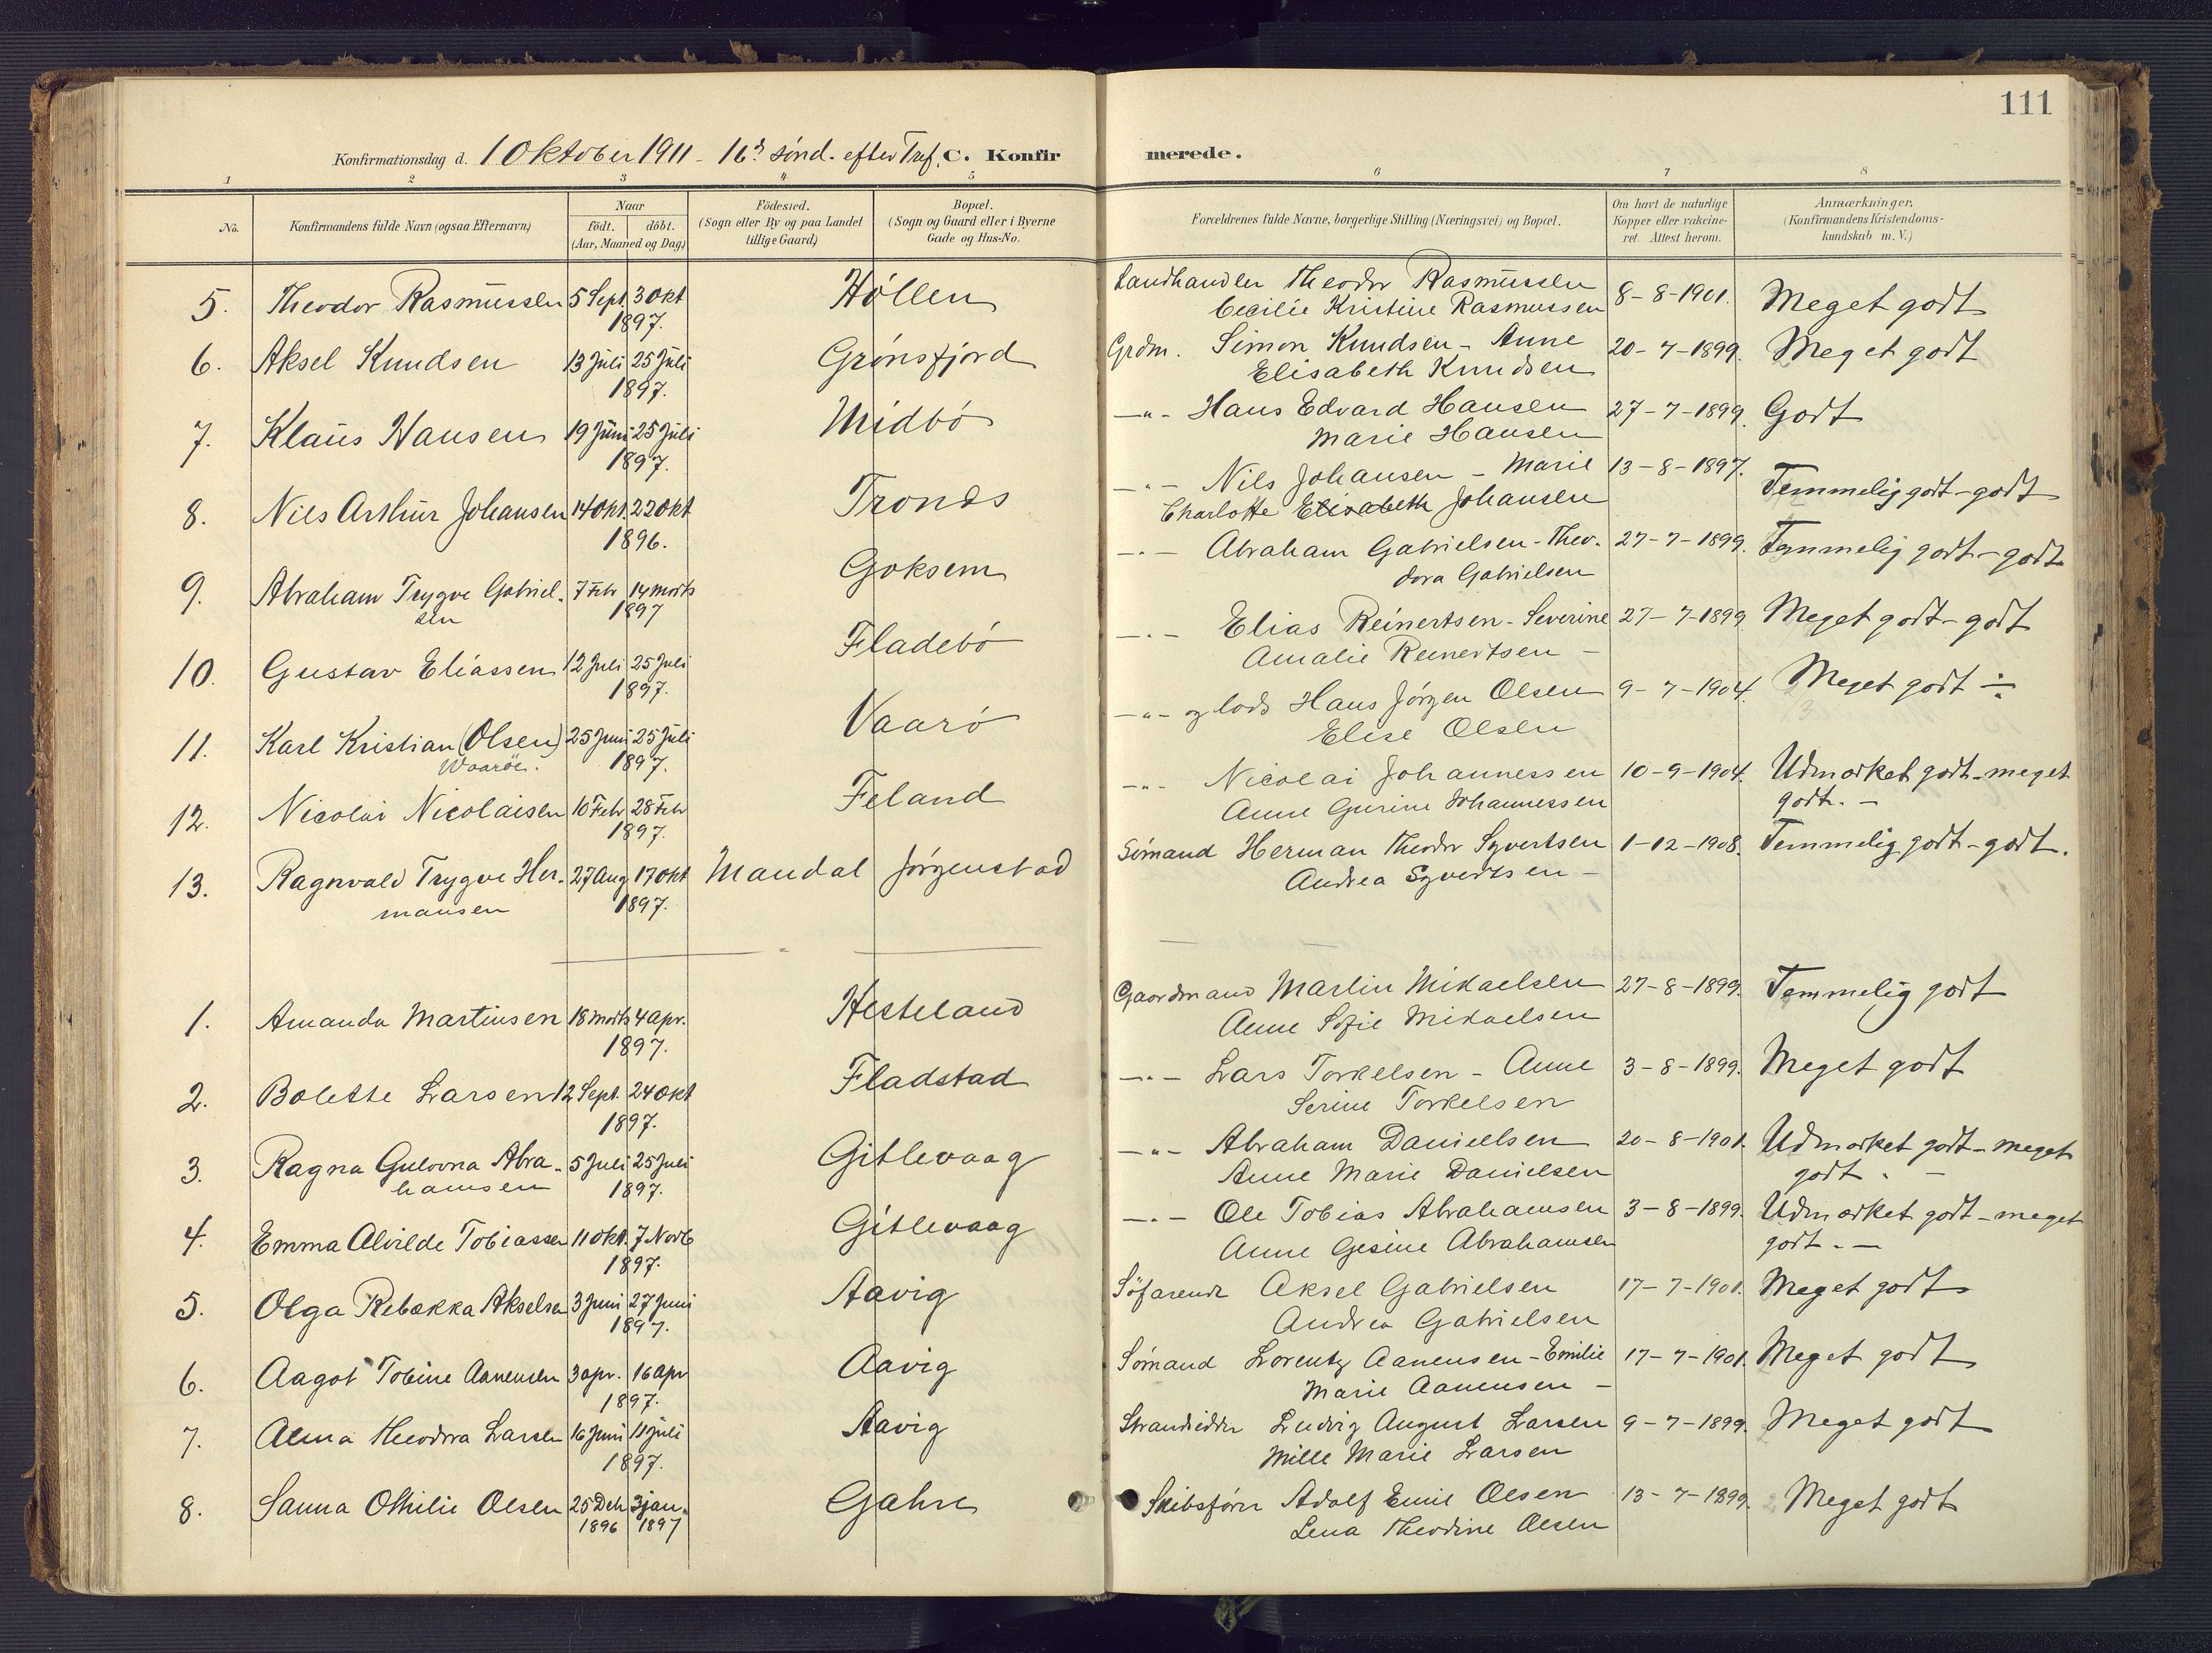 111
Konfirmationsdag d. 1 Oktober 1911 - 16d sönd. efter Tref. C. Konfirmerede.
1 2 3 4 5 6 7 8
No. Konfirmandens fulde Navn (ogsaa Efternavn) Naar födt. döbt. (Aar, Maaned og Dag) Födested. (Sogn eller By og paa Landet tillige Gaard) Bopæl. (Sogn og Gaard eller i Byerne Gade og Hus-No. Forældrenes fulde Navne, borgerlige Stilling (Næringsvei) og Bopæl. Om havt de naturlige Kopper eller vakcineret. Attest herom. Anmærkninger. (Konfirmandens Kristendomskundskab m. V.)
5. Theodor Rasmussen 5 Sept. 3 Okt 1897. Höllen Landhandler Theodor Rasmussen Cecilie Kristine Rasmussen 8-8-1901. Meget godt
6. Aksel Knudsen 13 Juli 25 Juli 1897. Grönsfjord Grdm. Simon Knudsen - Anne Elisabeth Knudsen 20-7-1899. Meget godt
7. Klaus Hansen 19 Juni 25 Juli 1897. Midbö -"- Hans Edvard Hansen Marie Hansen 27-7-1899. Godt
8. Nils Arthur Johansen 14 Okt. 22 Okt 1896. Tronds -"- Nils Johansen - Marie Charlotte Elisabeth Johansen 13-8-1897. Temmelig godt - godt
9. Abraham Trygve Gabrielsen 7 Febr 14 Marts 1897 Goksem -"- Abraham Gabrielsen - Theodora Gabrielsen 27-7-1899. Temmelig godt - godt
10. Gustav Eliassen 12 Juli 25 Juli 1897. Fladebö -"- Elias Reinertsen - Severine Amalie Reinertsen - 27-7-1899 Meget godt - godt
11. Karl Kristian (Olsen) Waaröe. 25 Juni 25 Juli 1897. Vaarö -"- og lods Hans Jörgen Olsen Elise Olsen 9-7-1904. Meget godt ÷
12. Nicolai Nicolaisen 10 Febr 28 Febr 1897. Feland -"- Nicolai Johannessen Anne Gurine Johannessen 10-9-1904. Udmærket godt - meget godt. -
13. Ragnvald Trygve Hermansen 27 Aug 17 Okt 1897. Mandal Jörgenstad Sömand Herman Theodor Syvertsen Andrea Syvertsen - 1-12-1908. Temmelig godt - godt.
1. Amanda Martinsen 18 Marts 4 Apr. 1897. Hesteland Gaardmand Martin Mikaelsen Anne Sofie Mikaelsen 27-8-1899. Temmelig godt
2. Bolette Larsen 12 Sept. 24 Okt 1897. Fladstad -"- Lars Torkelsen - Anne Serine Torkelsen 3-8-1899. Meget godt
3. Ragna Gulovna Abrahamsen 5 Juli 25 Juli 1897. Gitlevaag -"- Abraham Danielsen Anne Marie Danielsen 20-8-1901. Udmærket godt - meget godt. -
4. Emma Alvilde Tobiassen 11 Okt. 7 Novb 1897. Gitlevaag -"- Ole Tobias Abrahamsen Anne Gesine Abrahamsen 3-8-1899. Udmærket godt - meget godt. -
5. Olga Rebekka Akselsen 3 Juni 27 Juni 1897. Aavig Söfarende Aksel Gabrielsen Andrea Gabrielsen 17-7-1901. Meget godt
6. Aagot Tobine Aanensen 3 apr. 16 apr 1897. Aavig Sömand Lorentz Aanensen - Emilie Marie Aanensen - 17-7-1901. Meget godt
7. Alma Theodora Larsen 16 Juni 11 Juli 1897. Aavig Strandsidder Ludvig August Larsen Mille Marie Larsen 9-7-1899. Meget godt
8. Sanna Othilie Olsen 25 Deb 1896 3 jan. 1897 Gahre Skibsförer Adolf Emil Olsen Lena Theodine Olsen 13-7-1899. Meget godt